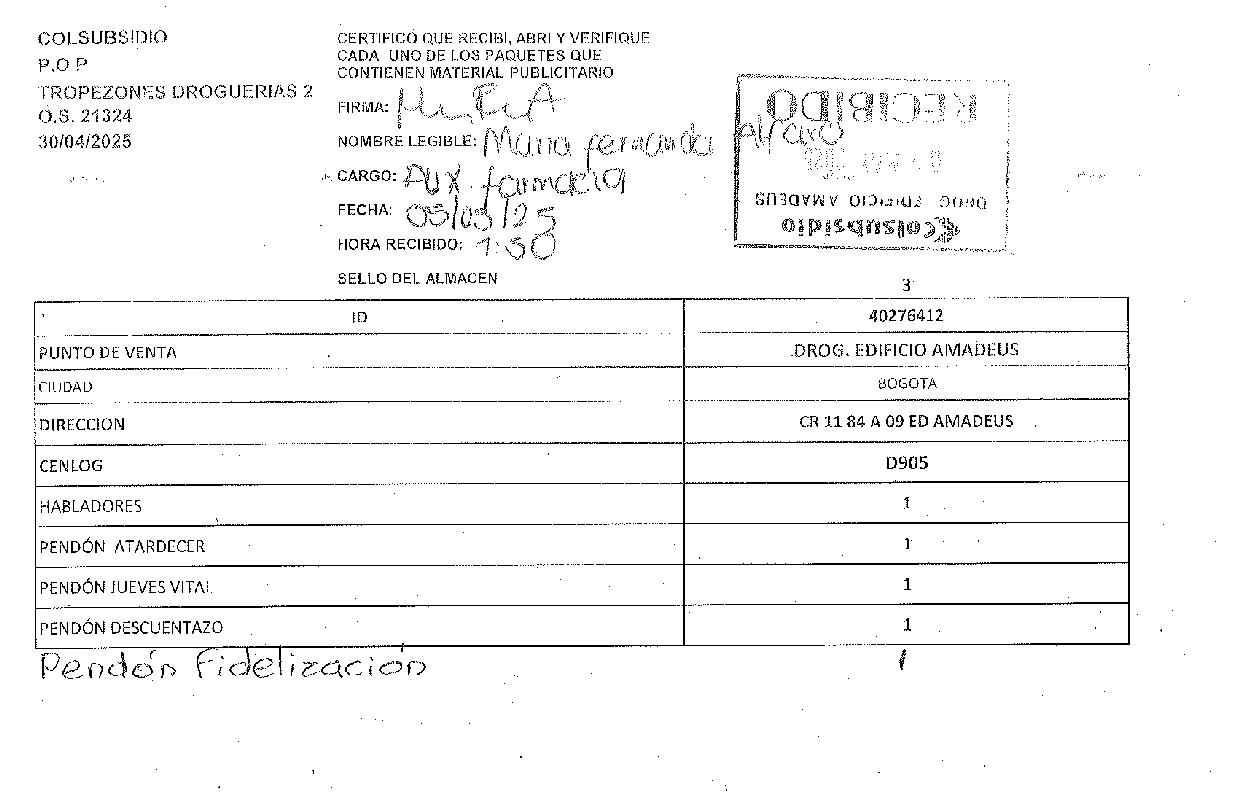 COLSUBSIDIO
P.O P
TROPEZONES DROGUERIAS 2
O.S. 21324
30/04/2025
CERTIFICÓ QUE RECIBI, ABRI Y VERIFIQUE
CADA UNO DE LOS PAQUETES QUE
CONTIENEN MATERIAL PUBLICITARIO
FIRMA:
NOMBRE LEGIBLE: Maria fernanda Alfaro
CARGO: Aux. farmacia
FECHA: 05/05/25
HORA RECIBIDO: 1:50
SELLO DEL ALMACEN
RECIBIDO
DROG EDIFICIO AMADEUS
Colsubsidio
3
ID 40276412
PUNTO DE VENTA DROG. EDIFICIO AMADEUS
CIUDAD BOGOTA
DIRECCION CR 11 84 A 09 ED AMADEUS
CENLOG D905
HABLADORES 1
PENDÓN ATARDECER 1
PENDÓN JUEVES VITAL 1
PENDÓN DESCUENTAZO 1
Pendón Fidelización 1